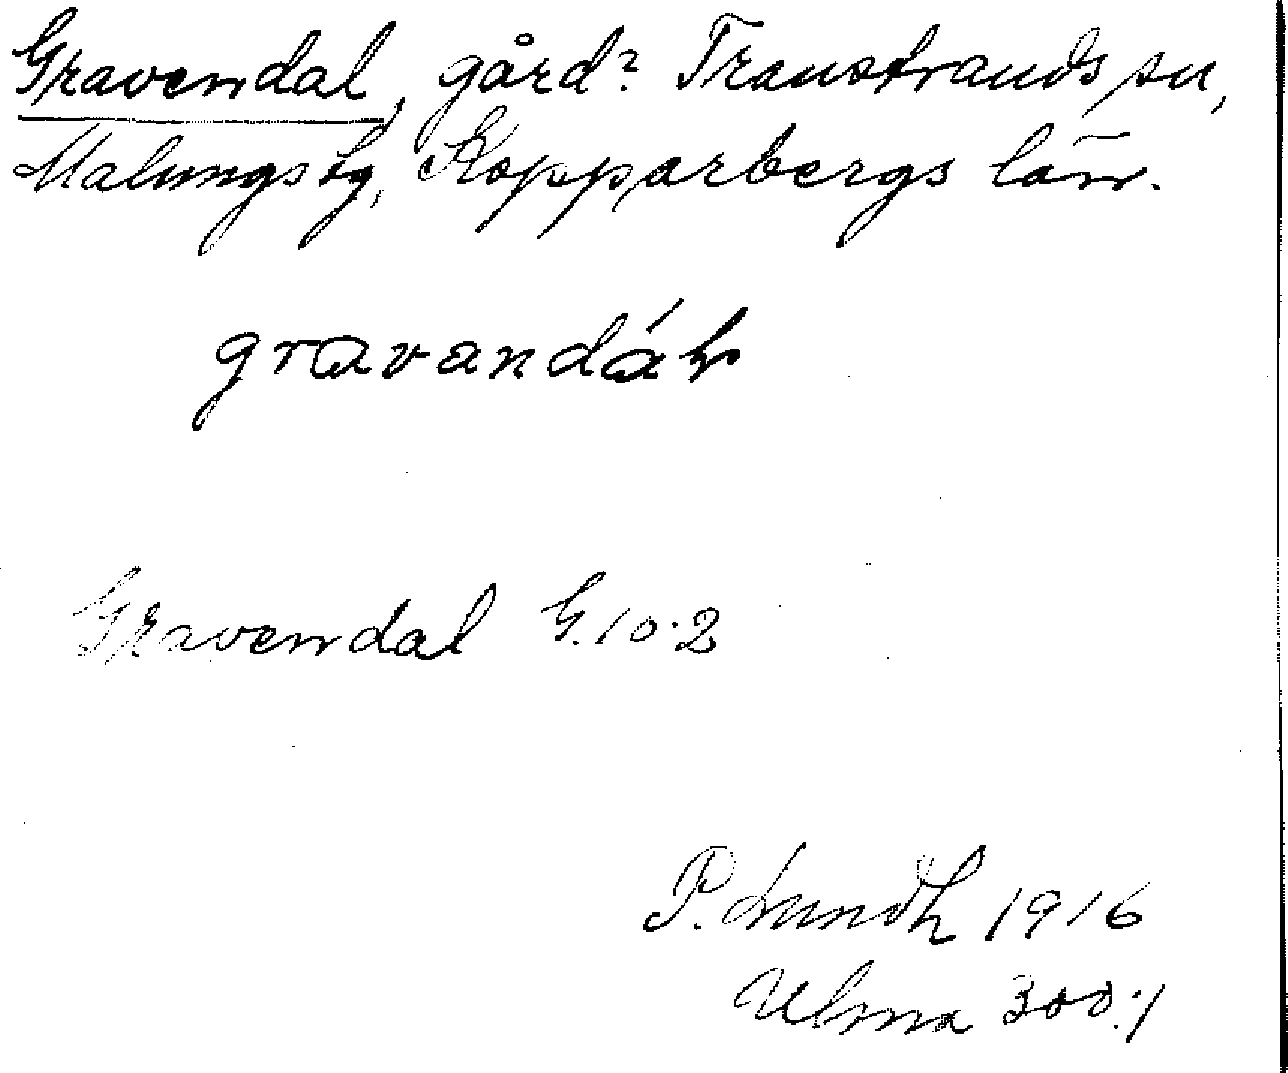 Gravendal, gård? Transtrands sn,
Malungs tg, Kopparbergs län.
gravandáɫ
Gravendal G.10.2
P. Lundh 1916
Ulma 300:1